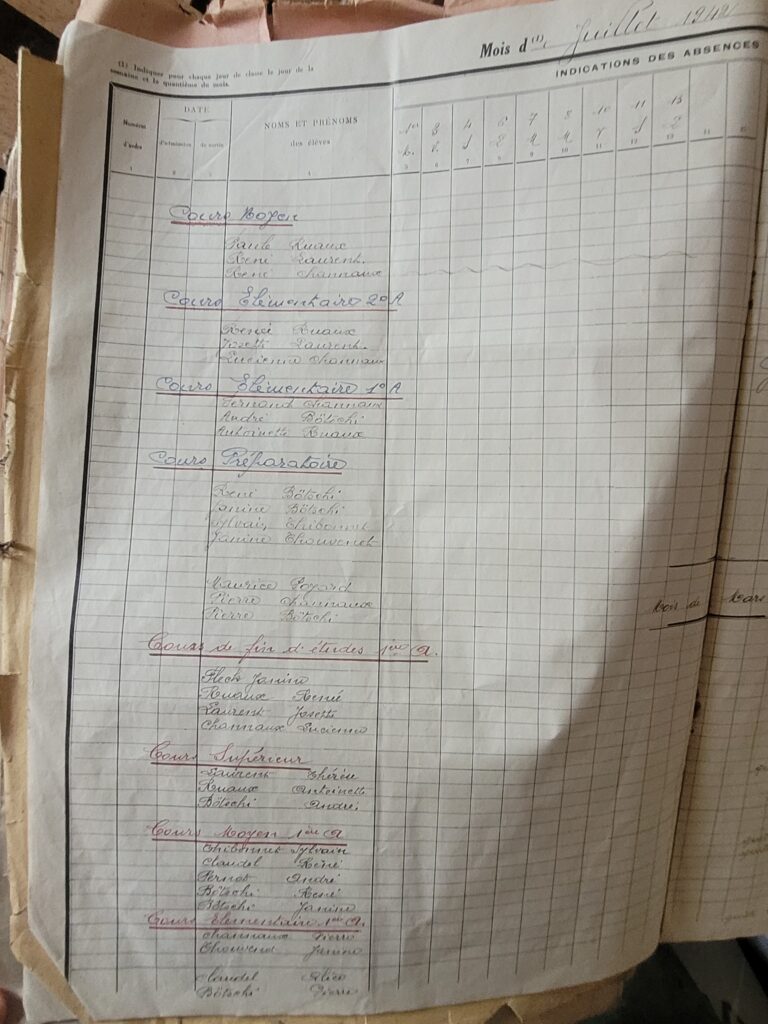 Mois d(1) Juillet 1942
(1) Indiquer pour chaque jour de classe le jour de la
semaine et le quantième du mois.
INDICATIONS DES ABSENCES
DATE
Numéros
d'ordre
d'admission
de sortie
NOMS ET PRÉNOMS
des élèves
1er 3 4 6 7 8 10 11 13
V. S M M V S
1 2 3 4 5 6 7 8 9 10 11 12 13 14 15
Cours Moyen
Paule Ruaux
René Laurent.
René Channaux
Cours Elémentaire 2e A
Renée Ruaux
Josette Laurent.
Lucienne Channaux
Cours Elémentaire 1e A
Fernand Channaux
André Bötschi
Antoinette Ruaux
Cours Préparatoire
René Bötschi
Janine Bötschi
Sylvain Thibonnet
Janine Chouvenet
Maurice Poyard
Pierre Channaux
Pierre Bötschi
Mois de Mars
Cours de fin d'études 1ère A.
Flech Janine
Ruaux Renée
Laurent Josette
Channaux Lucienne
Cours Supérieur
Laurent Thérèse
Ruaux Antoinette
Bötschi André
Cours Moyen 1ère A
Thibonnet Sylvain
Claudel René
Pernot André
Bötschi René
Bötschi Janine
Cours Elémentaire 1ère A.
Channaux Pierre
Chouvend Janine
Claudel Alice
Bötschi Pierre